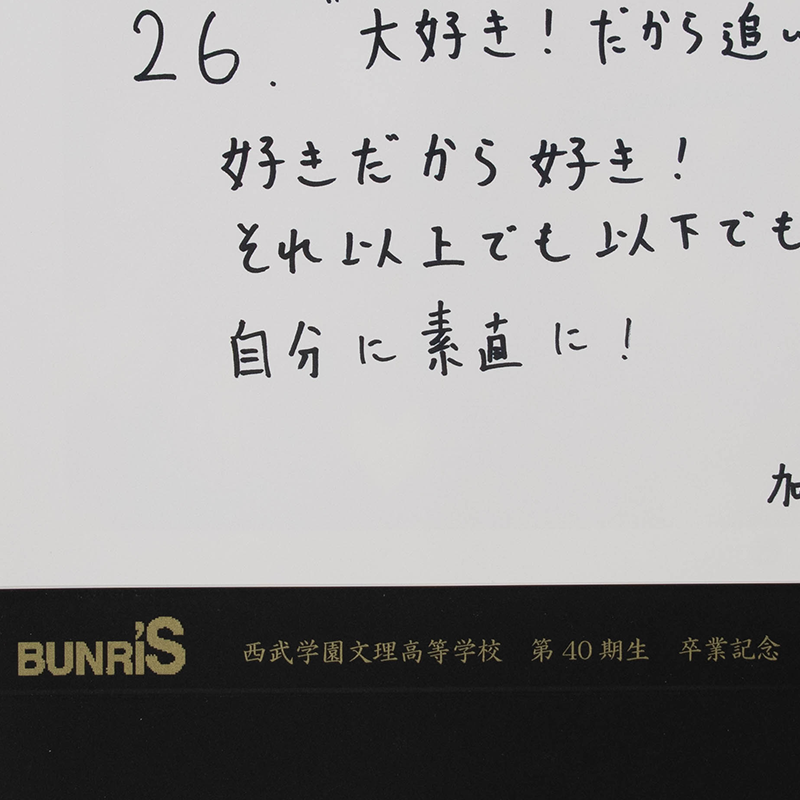 26. "大好き！だから追い
好きだから好き！
それ以上でも以下でも
自分に素直に！
加
BUNRI'S 西武学園文理高等学校 第40期生 卒業記念